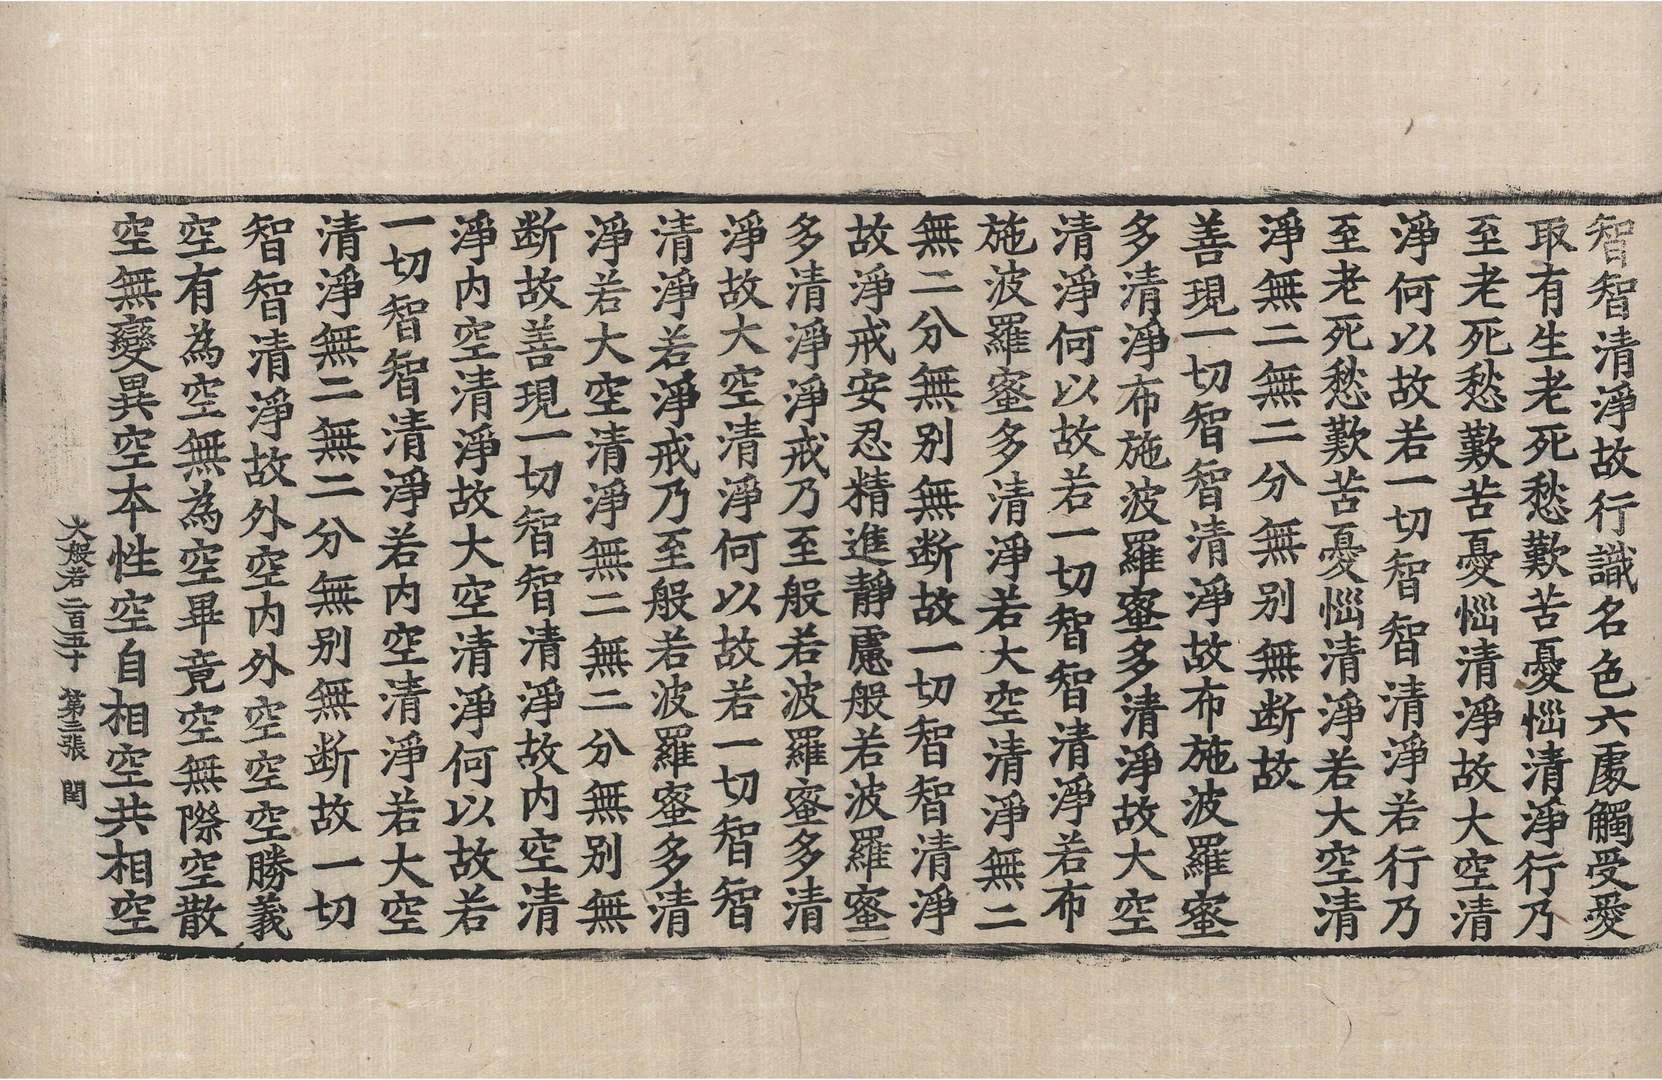 智智清淨故行識名色六處觸受愛
取有生老死愁歎苦憂惱清淨行乃
至老死愁歎苦憂惱清淨故大空清
淨何以故若一切智智清淨若行乃
至老死愁歎苦憂惱清淨若大空清
淨無二無二分無別無断故
善現一切智智清淨故布施波羅蜜
多清淨布施波羅蜜多清淨故大空
清淨何以故若一切智智清淨若布
施波羅蜜多清淨若大空清淨無二
無二分無别無断故一切智智清淨
故淨戒安忍精進靜慮般若波羅蜜
多清淨淨戒乃至般若波羅蜜多清
淨故大空清淨何以故若一切智智
清淨若淨戒乃至般若波羅蜜多清
淨若大空清淨無二無二分無别無
断故善現一切智智清淨故内空清
淨内空清淨故大空清淨何以故若
一切智智清淨若内空清淨若大空
清淨無二無二分無别無断故一切
智智清淨故外空内外空空空勝義
空有為空無為空畢竟空無際空散
空無變異空本性空自相空共相空
大般若二百五十 第三張 閏